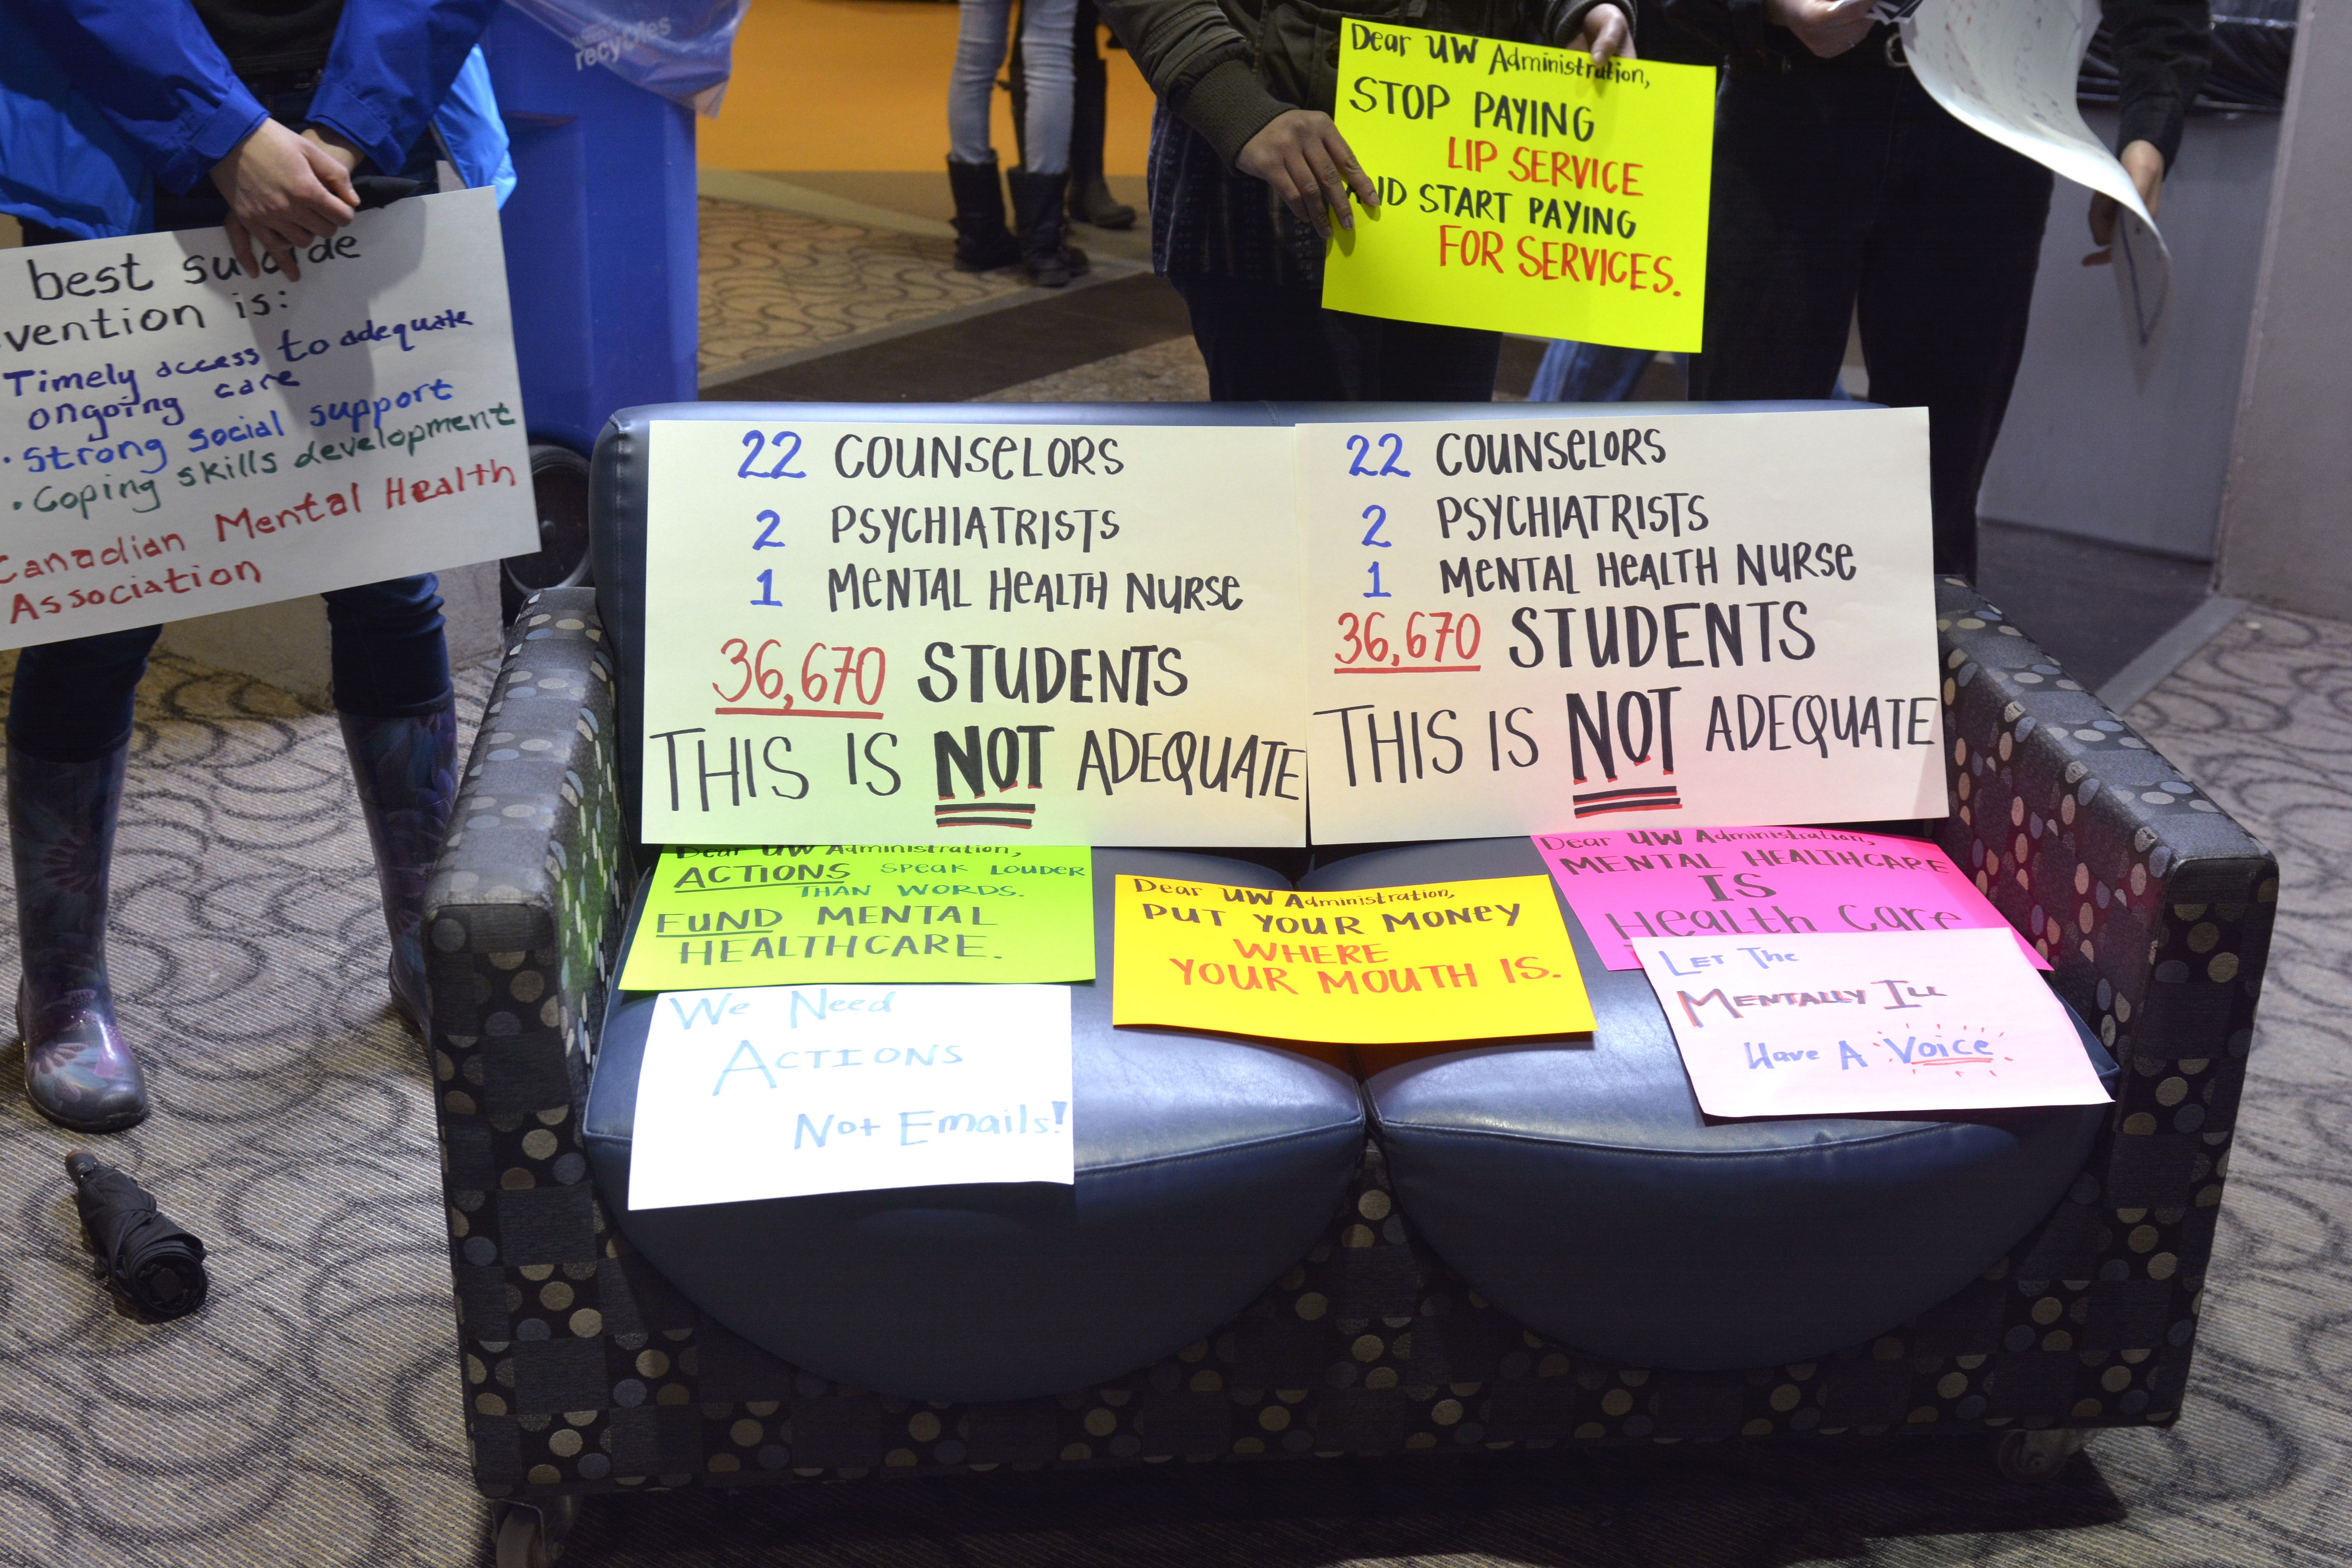 recycles
Dear UW Administration,
STOP PAYING
LIP SERVICE
AND START PAYING
FOR SERVICES.
best suicide
vention is:
Timely access to adequate
ongoing care
· Strong social support
· Coping skills development
Canadian Mental Health
Association
22 COUNSELORS
2 PSYCHIATRISTS
1 MENTAL HEALTH NURSE
36,670 STUDENTS
THIS IS NOT ADEQUATE
22 COUNSELORS
2 PSYCHIATRISTS
1 MENTAL HEALTH NURSE
36,670 STUDENTS
THIS IS NOT ADEQUATE
Dear UW Administration,
ACTIONS SPEAK LOUDER
THAN WORDS.
FUND MENTAL
HEALTHCARE.
Dear UW Administration,
PUT YOUR MONEY
WHERE
YOUR MOUTH IS.
Dear UW Administration,
MENTAL HEALTHCARE
IS
HeaLth Care
We Need
Actions
Not Emails!
Let The
Mentally Ill
Have A Voice